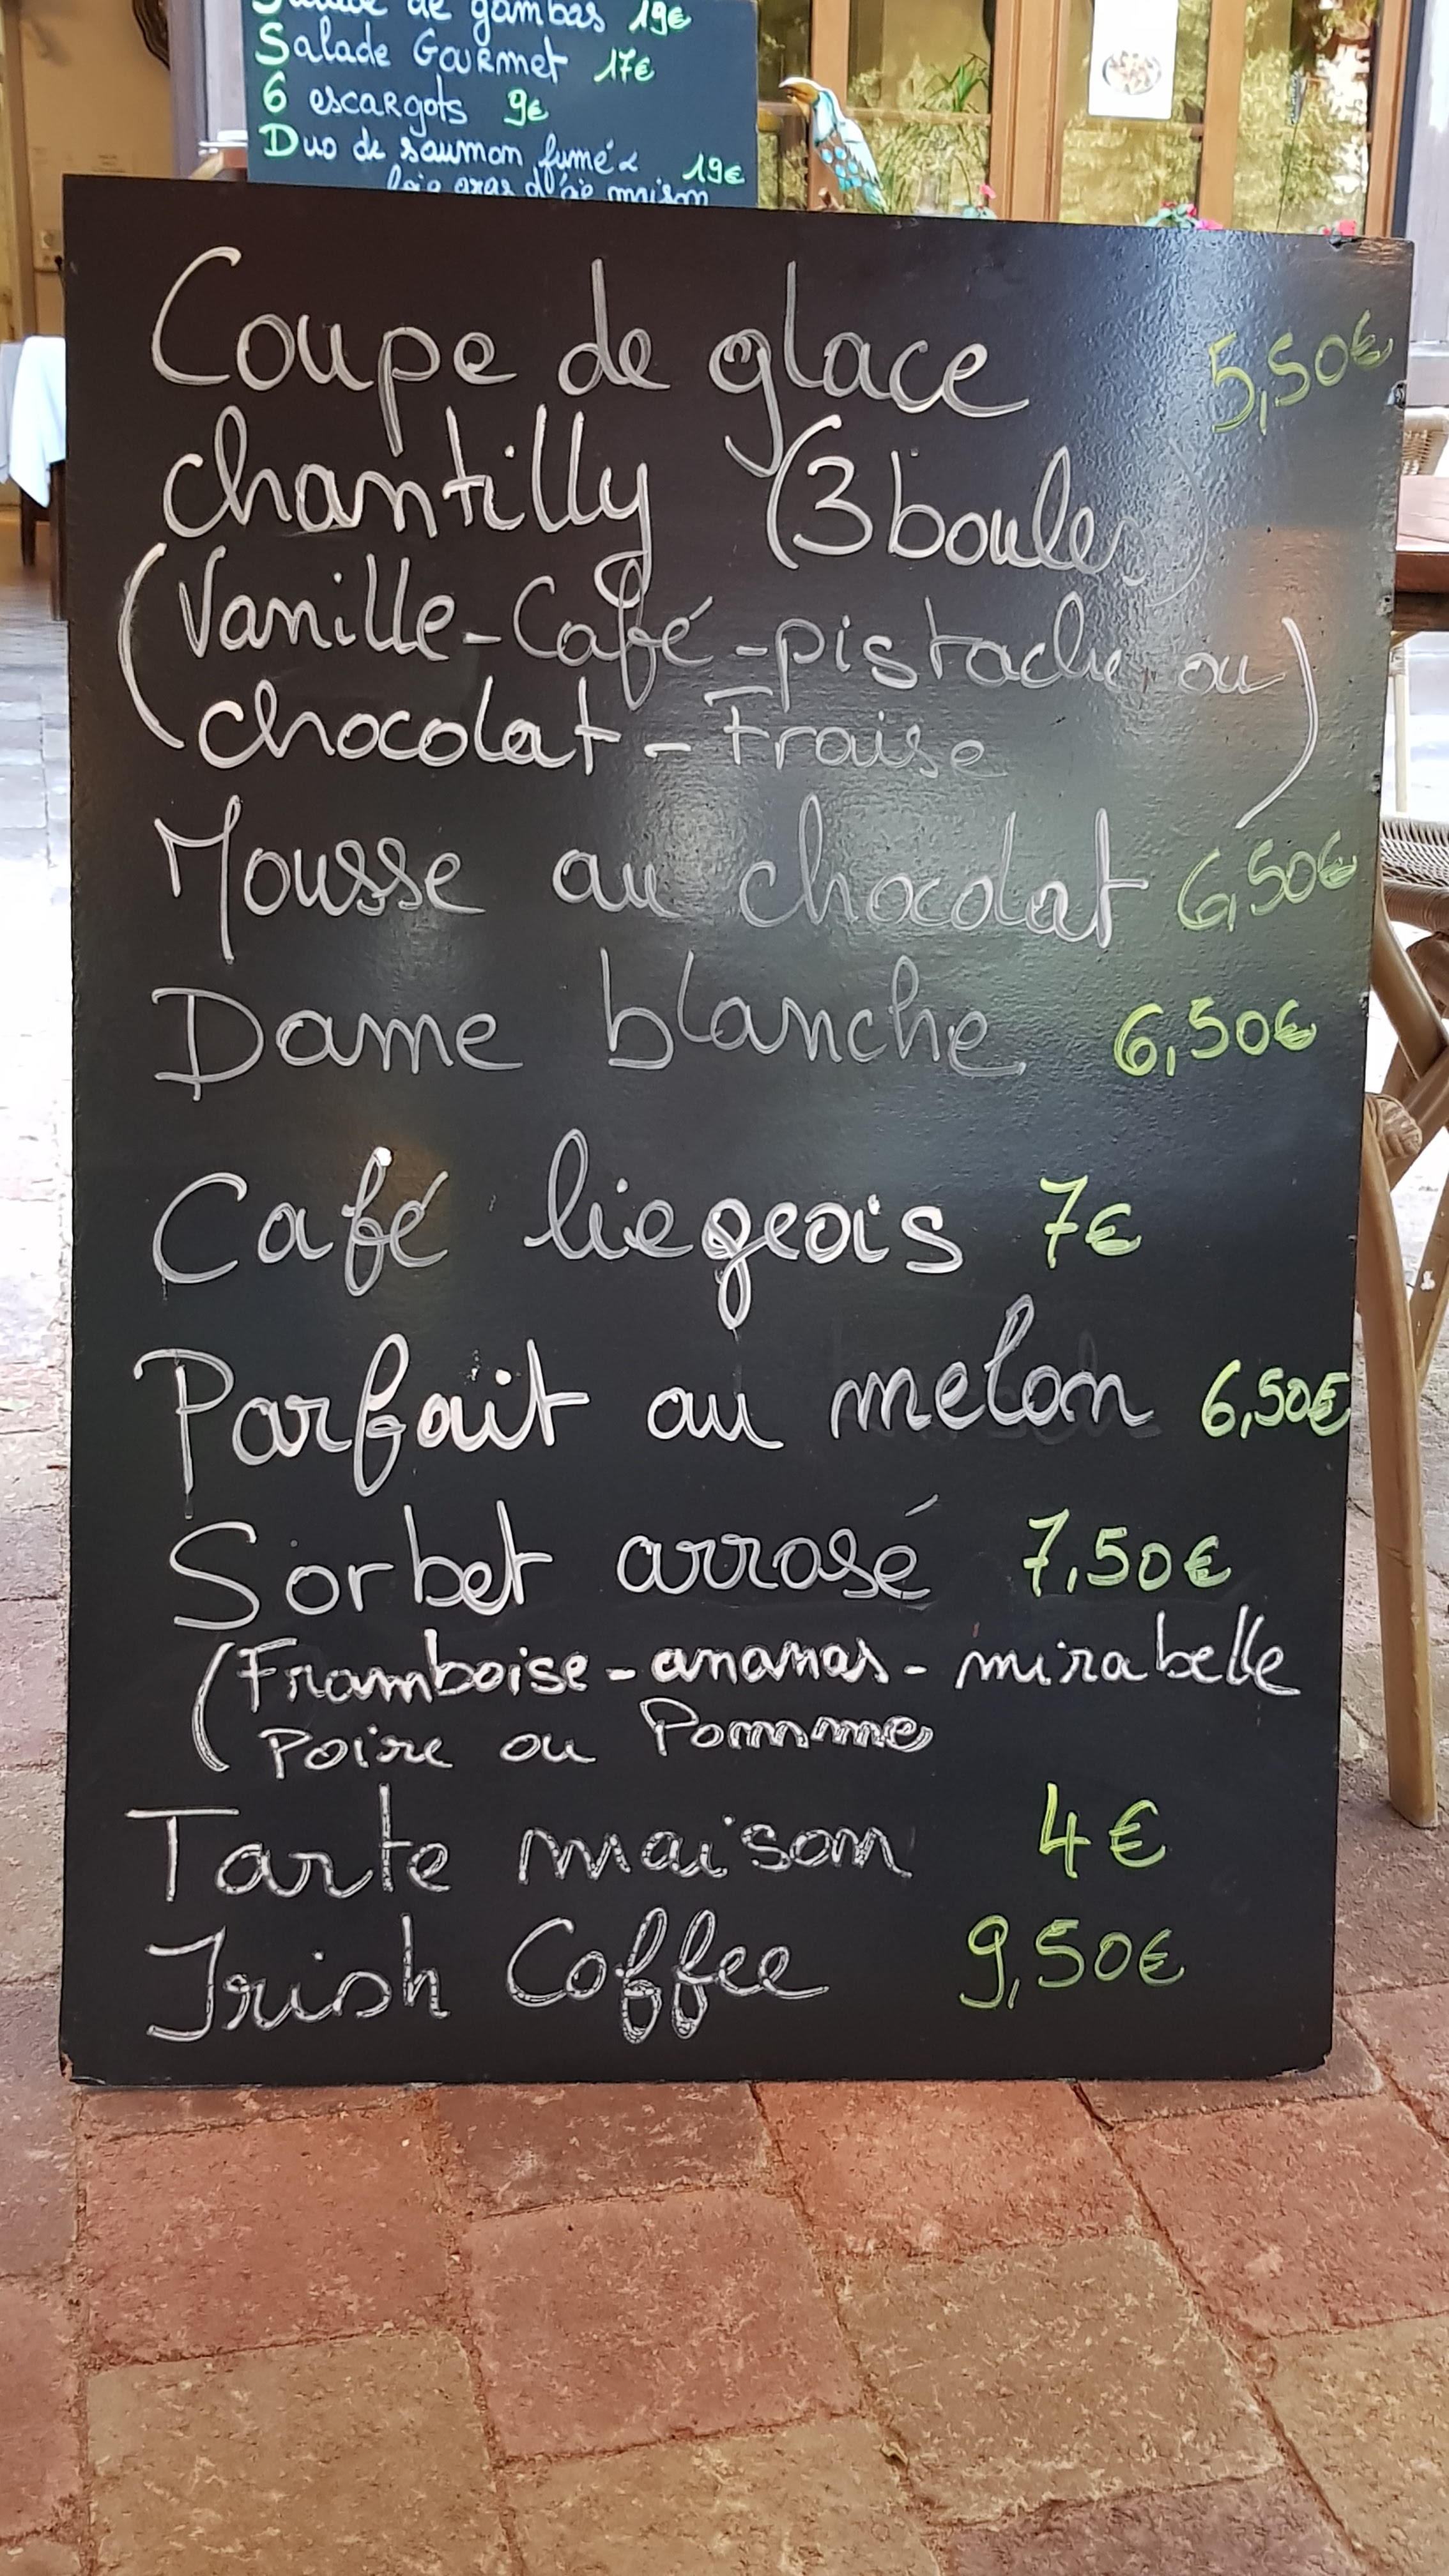 de gambas 19€
Salade Gourmet 17€
6 escargots 9€
Duo de saumon fumé & 19€
foie gras d'oie maison
Coupe de glace 5,50€
chantilly (3 boules)
(Vanille-Café-pistache ou
chocolat - Fraise)
Mousse au chocolat 6,50€
Dame blanche 6,50€
Café liegeois 7€
Parfait au melon 6,50€
Sorbet arrosé 7,50€
(Framboise - ananas - mirabelle
Poire ou Pomme
Tarte maison 4€
Irish Coffee 9,50€